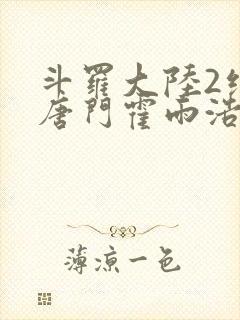 斗羅大陸2
唐門霍雨浩
薄涼一色